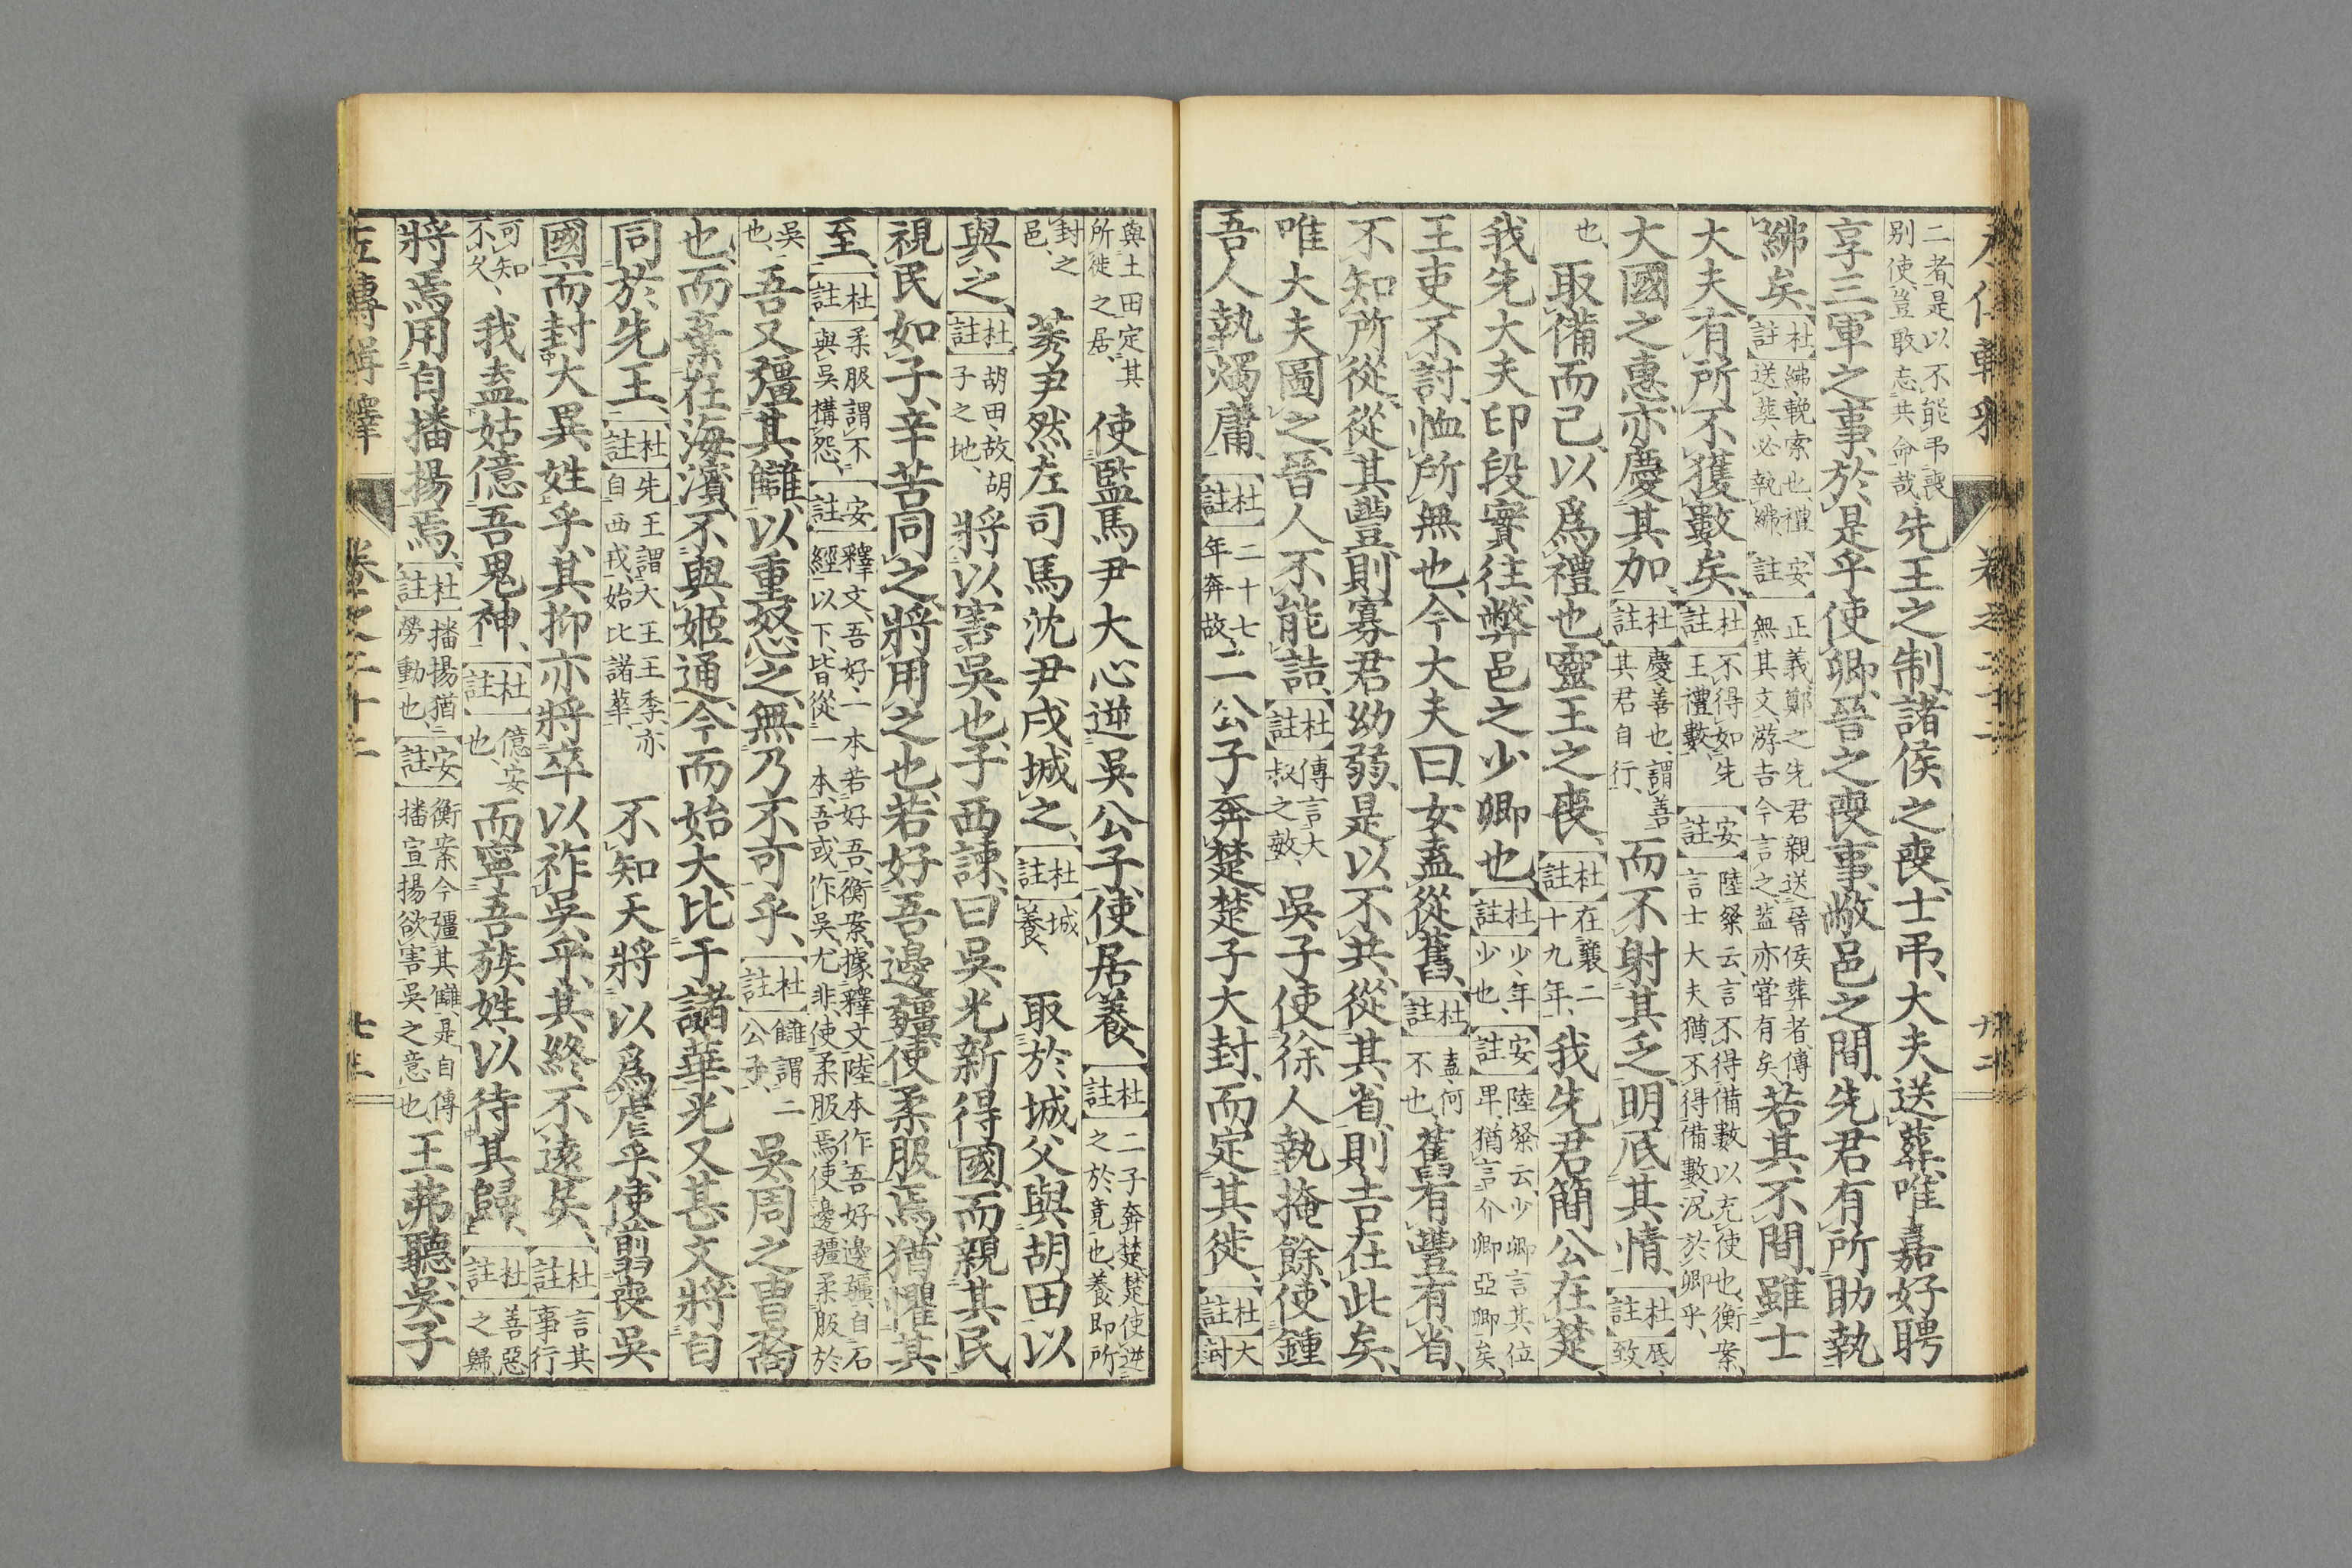 二者是以不能弔喪別使豈敢忘共命哉先王之制諸侯之喪士弔大夫送葬唯嘉好聘
享三軍之事於是乎使卿晉之喪事敝邑之間先君有所助執
紼矣【杜註】紼輓索也禮送葬必執紼【安註】正義鄭之先君親送晉侯葬者傳無其文游吉今言之蓋亦嘗有矣若其不間雖士
大夫有所不獲數矣【杜註】不得如先王禮數【安註】陸粲云言不得備數以充使也衡案言士大夫猶不得備數況於卿乎
大國之惠亦慶其加【杜註】慶善也謂善其君自行而不射其乏明厎其情【杜註】厎致
也取備而已以爲禮也靈王之喪【杜註】在襄二十九年我先君簡公在楚
我先大夫印段實往弊邑之少卿也【杜註】少年少也【安註】陸粲云少卿言其位卑猶言介卿亞卿矣
王吏不討恤所無也今大夫曰女盍從舊【杜註】盍何不也舊有豐有省
不知所從從其豐則寡君幼弱是以不共從其省則吉在此矣
唯大夫圖之晉人不能詰【杜註】傳言大叔之敏吳子使徐人執掩餘使鍾
吾人執燭庸【杜註】二十七年奔故二公子奔楚楚子大封而定其徙【杜註】大封
與土田定其所徙之居使監馬尹大心逆吳公子使居養【杜註】二子奔楚楚使逆之於竟也養即所
封之邑莠尹然左司馬沈尹戌城之【杜註】城養取於城父與胡田以
與之【杜註】胡田故胡子之地將以害吳也子西諫曰吳光新得國而親其民
視民如子辛苦同之將用之也若好吾邊疆使柔服焉猶懼其
至【杜註】柔服謂不與吳構怨【安註】釋文吾好一本若好吾衡案據釋文陸本作吾好邊疆自石經以下皆從一本吾或作吳尤非使柔服焉使邊疆柔服於
吳也吾又彊其讎以重怒之無乃不可乎【杜註】讎謂二公子吳周之冑裔
也而棄在海濱不與姬通今而始大比于諸華光又甚文將自
同於先王【杜註】先王謂大王王季亦自西戎始比諸華不知天將以爲虐乎使翦喪吳
國而封大異姓乎其抑亦將卒以祚吳乎其終不遠矣【杜註】言其事行
可知不久我盍姑億吾鬼神【杜註】億安也而寧吾族姓以待其歸【杜註】善惡之歸
將焉用自播揚焉【杜註】播揚猶勞動也【安註】衡案今彊其讎是自傳播宣揚欲害吳之意也王弗聽吳子
左傳輯釋